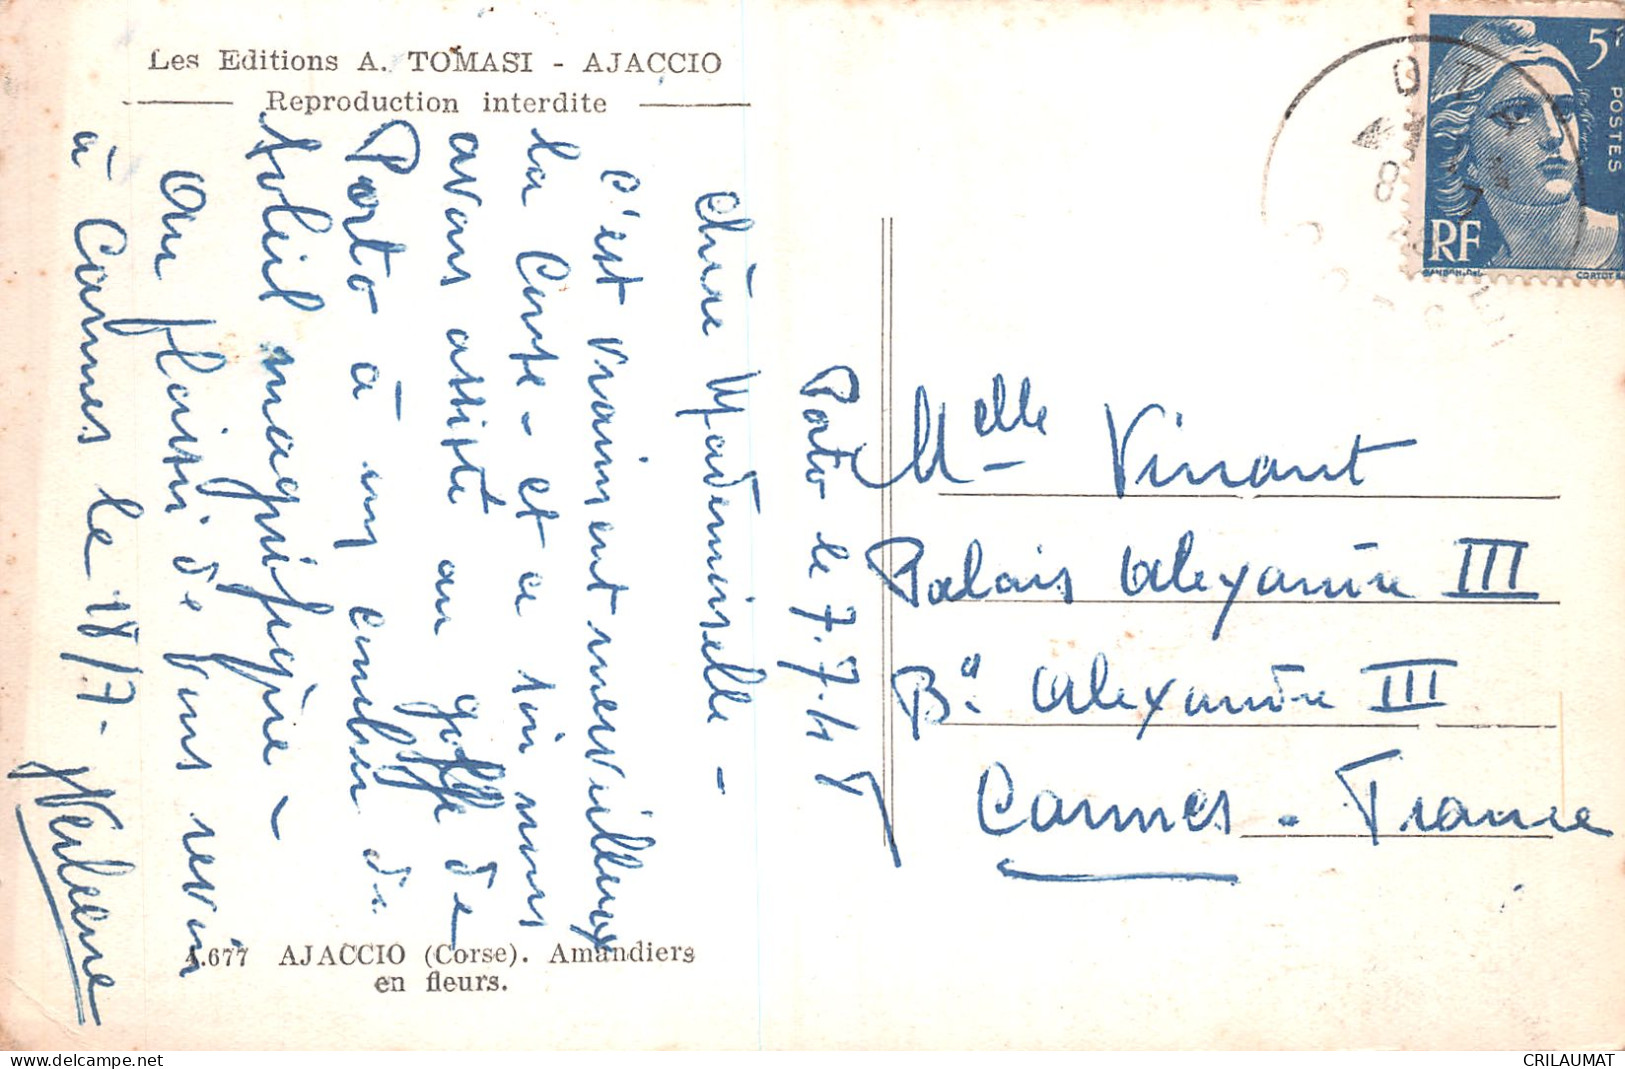 Les Editions A. TOMASI - AJACCIO
Reproduction interdite
Porto le 7.7.48
Chère Mademoiselle -
C'est vraiment merveilleux
la Corse - et ce soir nous
avons assisté au golfe de
Porto à un coucher de
soleil magnifique -
Au plaisir de vous revoir
à Cannes le 18/7.
4.677 AJACCIO (Corse). Amandiers
en fleurs.
Melle Vinant
Palais Alexandre III
Bd. Alexandre III
Cannes - France
OTA
5F
POSTES
RF
GANDON.DEL
CORTOT
CRILAUMAT